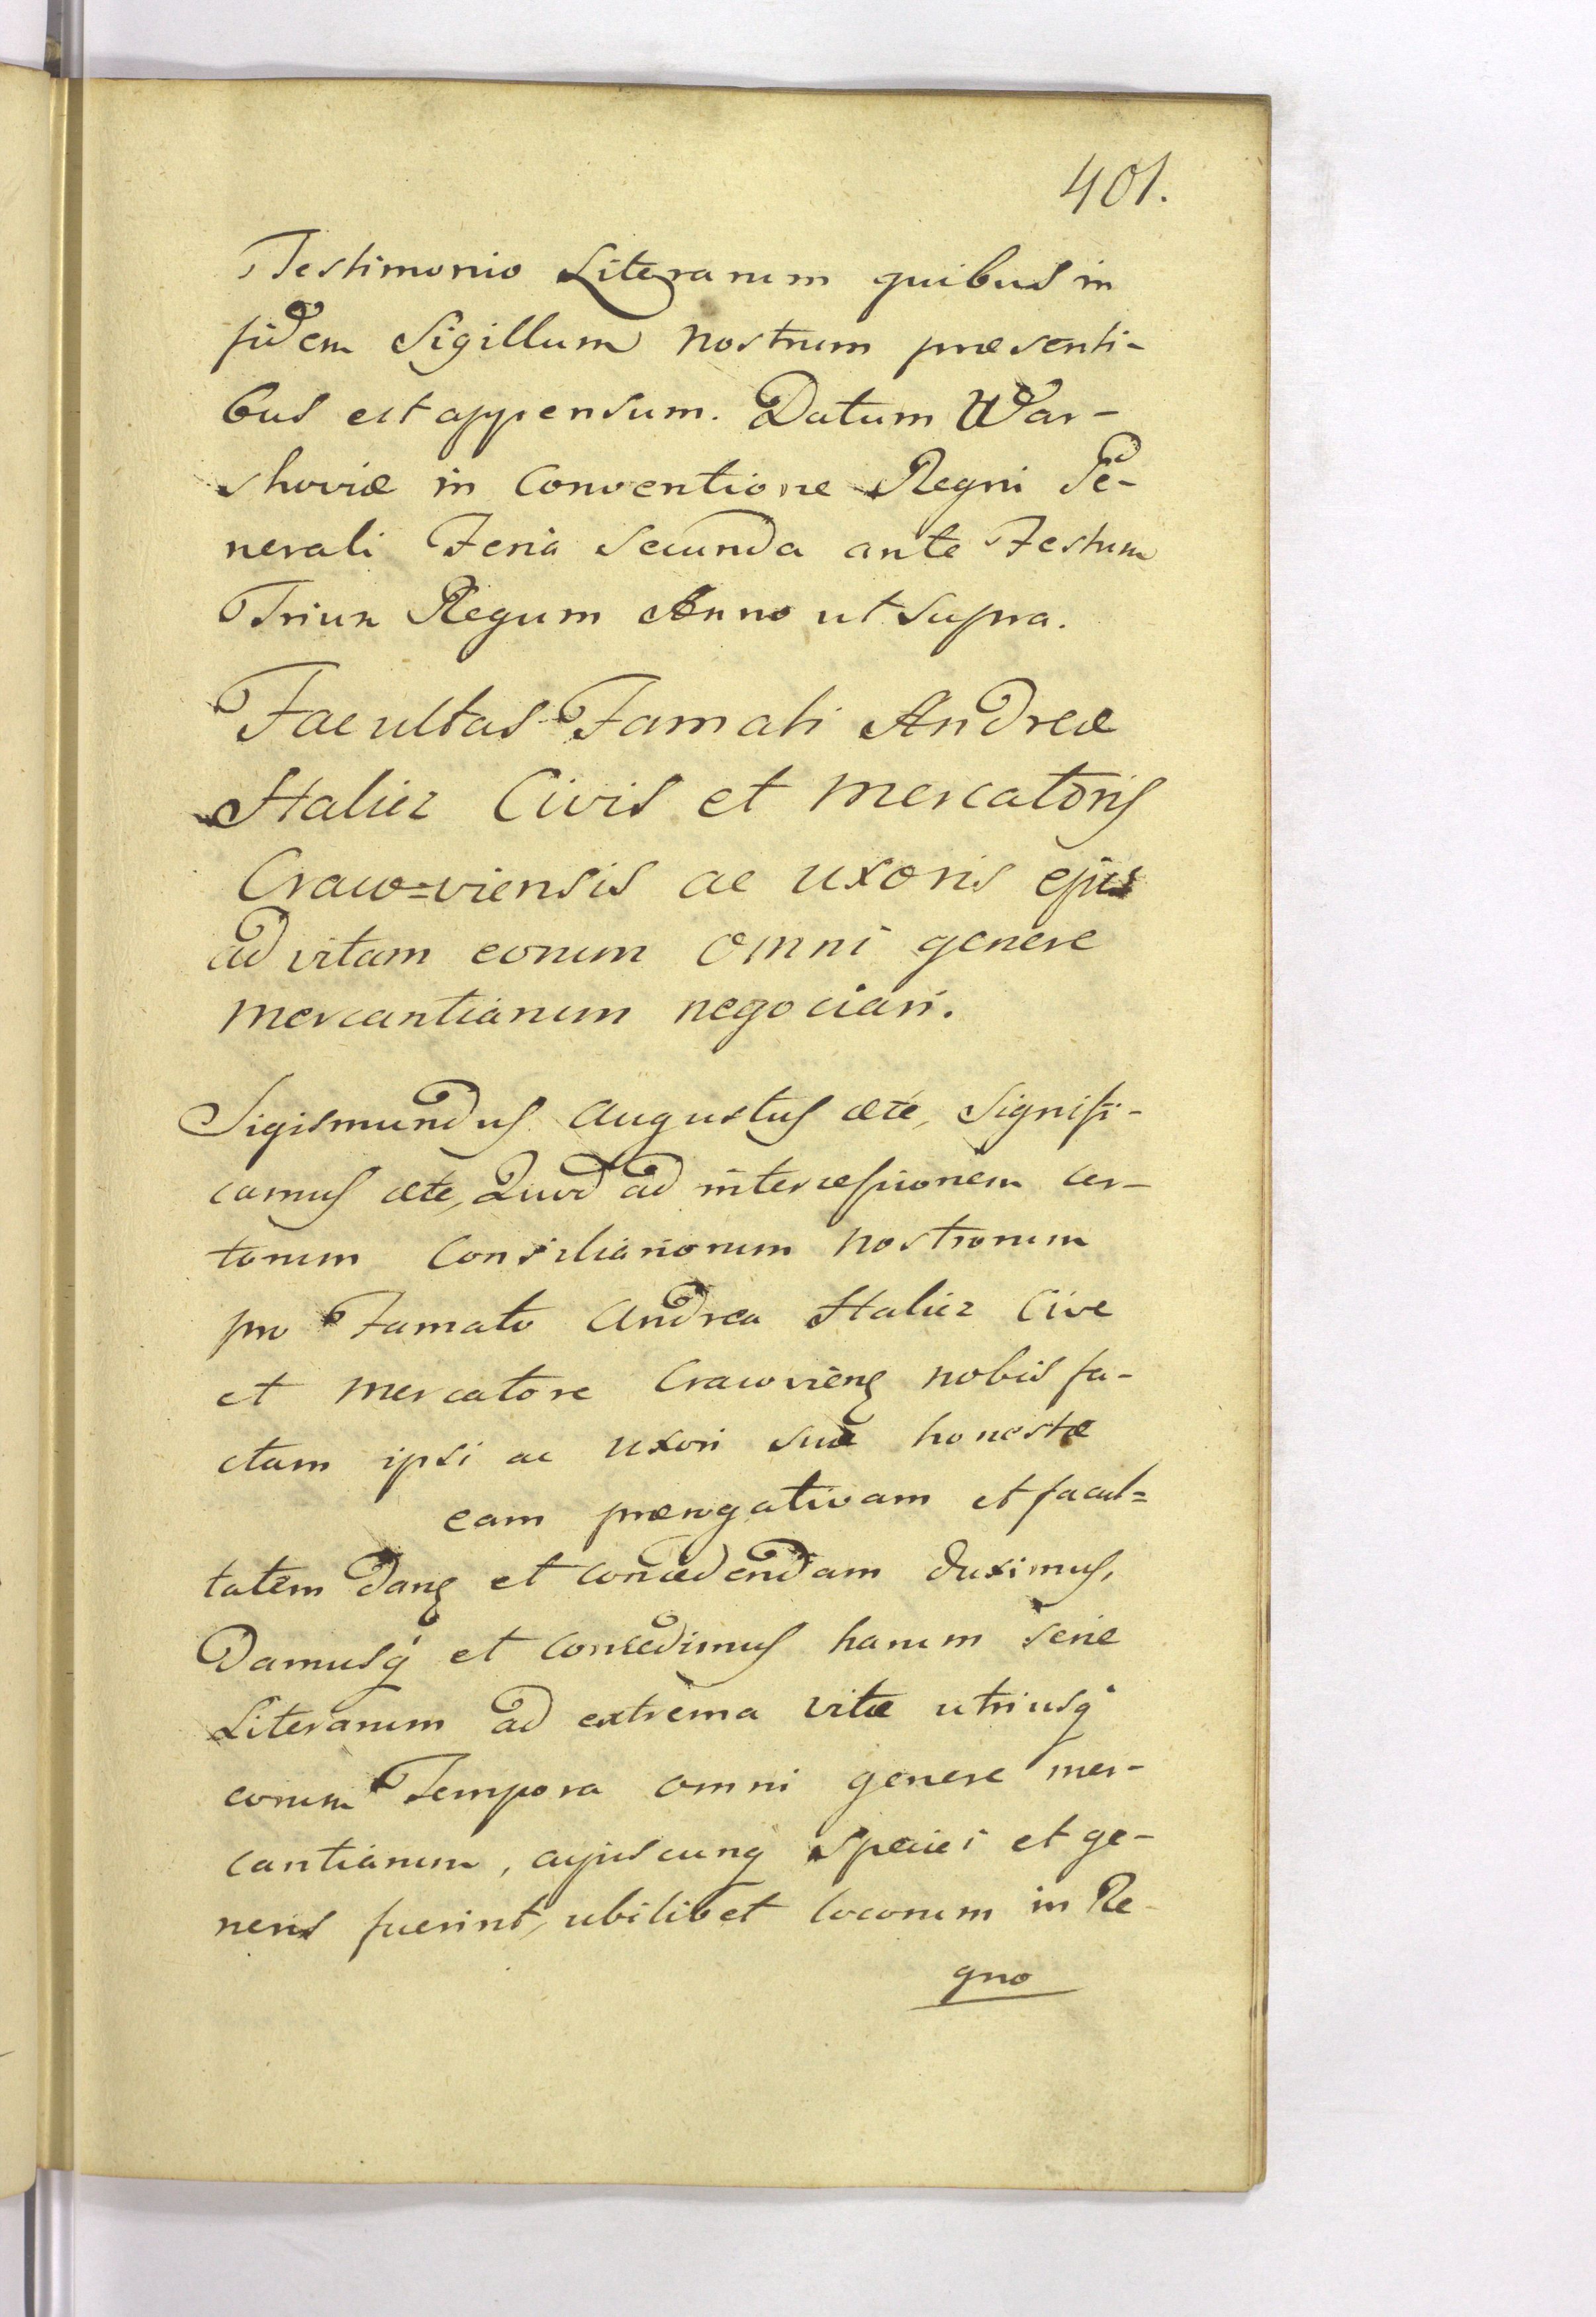 401.
Testimonio Literarum quibus in
fidem Sigillum nostrum præsenti-
bus est appensum. Datum War-
shoviæ in Conventione Regni Ge-
nerali Feria Secunda ante Festum
Trium Regum Anno ut Supra.
Facultas Famati Andreæ
Stalicz Civis et Mercatoris
Craco=viensis ac uxoris ejus
ad vitam eorum omni genere
mercantiarum negociari.
Sigismundus Augustus ætē, Signifi-
camus æte, Quod ad intercessionem cer-
torum Consiliariorum nostrorum
pro Famato Andrea Stalicz Cive
et Mercatore Cracovieñ nobis fa-
ctam ipsi ac uxori suæ honestæ
eam prærogativam et facul=
tatem dan̄ et concedendam duximus,
Damusq et concedimus harum serie
Literarum ad extrema vitæ utriusq
eorum Tempora omni genere mer-
cantiarum, cujuscunq speciei et ge-
neris fuerint, ubilibet locorum in Re-
gno